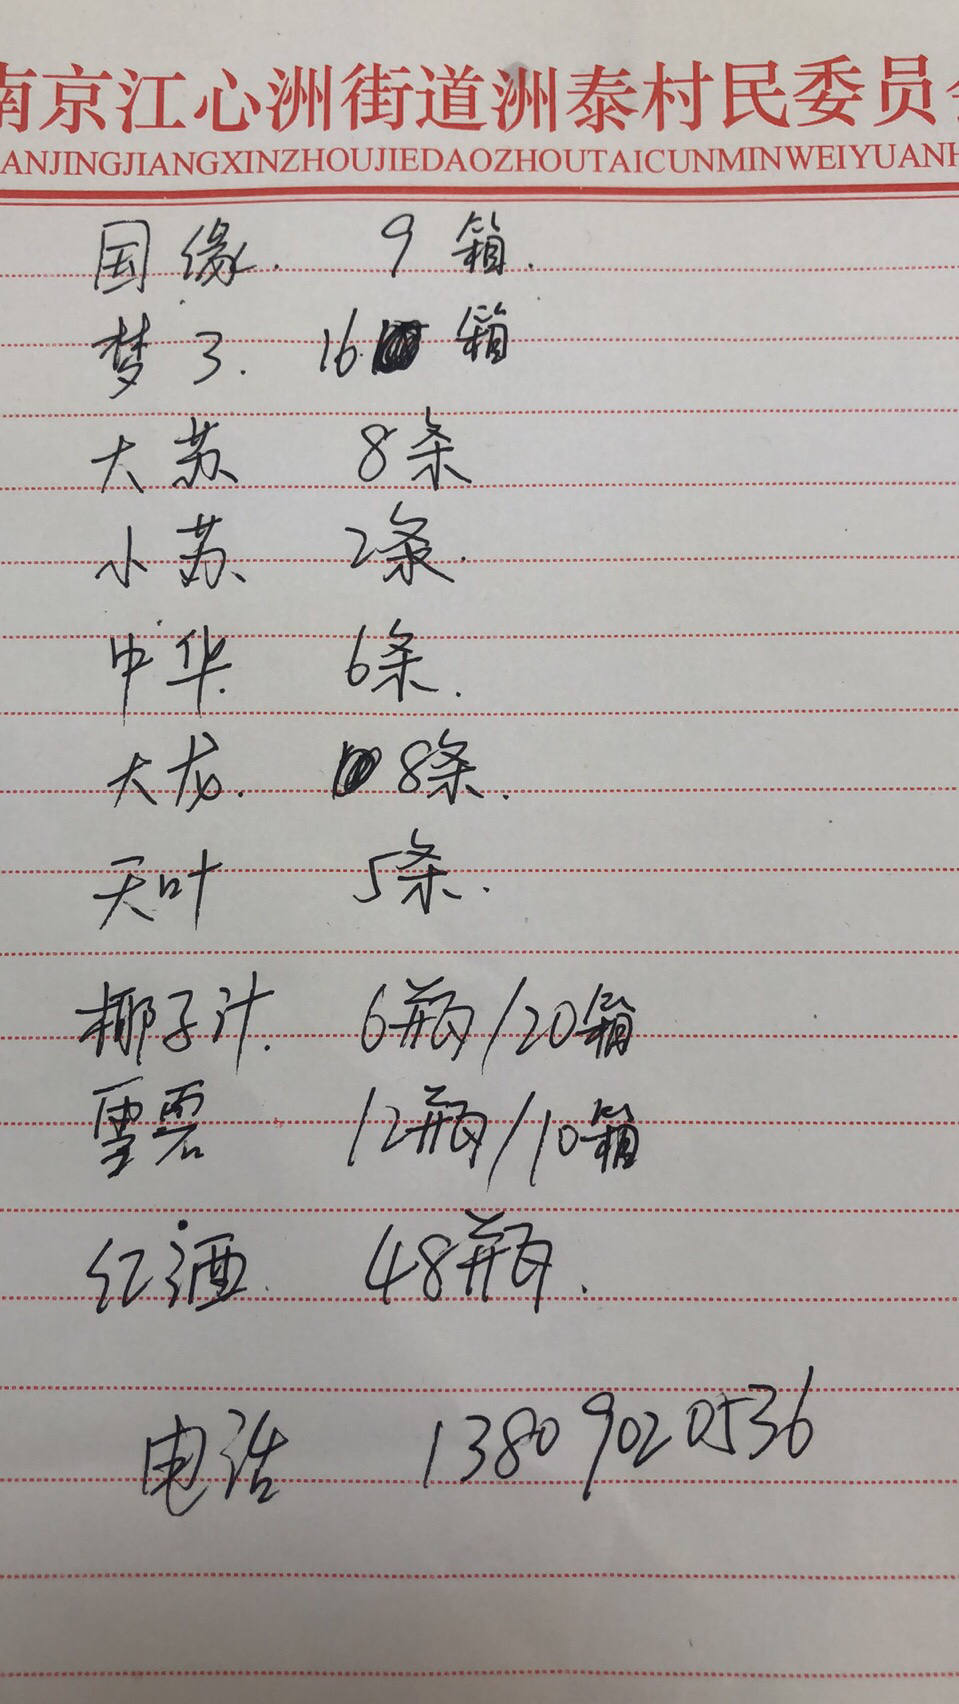 南京江心洲街道洲泰村民委员会
ANJINGJIANGXINZHOUJIEDAOZHOUTAICUNMINWEIYUANH
国缘. 9箱.
梦3. 16箱
大苏 8条
小苏 2条.
中华. 6条.
大龙. 8条.
天叶 5条.
椰子汁. 6瓶/20箱
雪碧 12瓶/10箱
红酒. 48瓶.
电话 13809020536